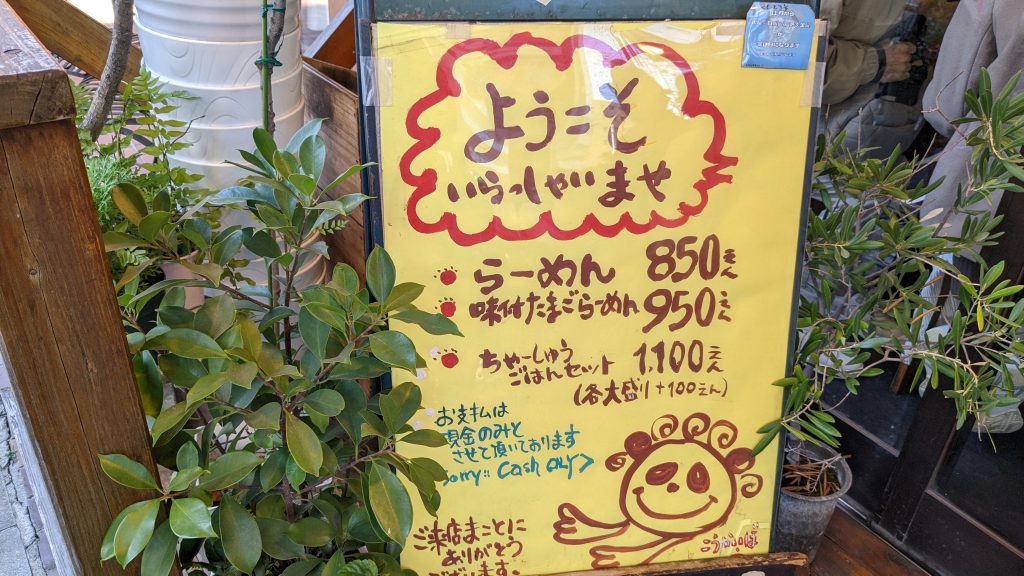 ようこそ
いらっしゃいませ
らーめん 850えん
味付たまごらーめん 950えん
ちゃーしゅう
ごはんセット 1,100えん
(各大盛り+100えん)
お支払は
現金のみと
させて頂いております
sorry:: Cash only>
ご来店まことに
ありがとう
ございます。